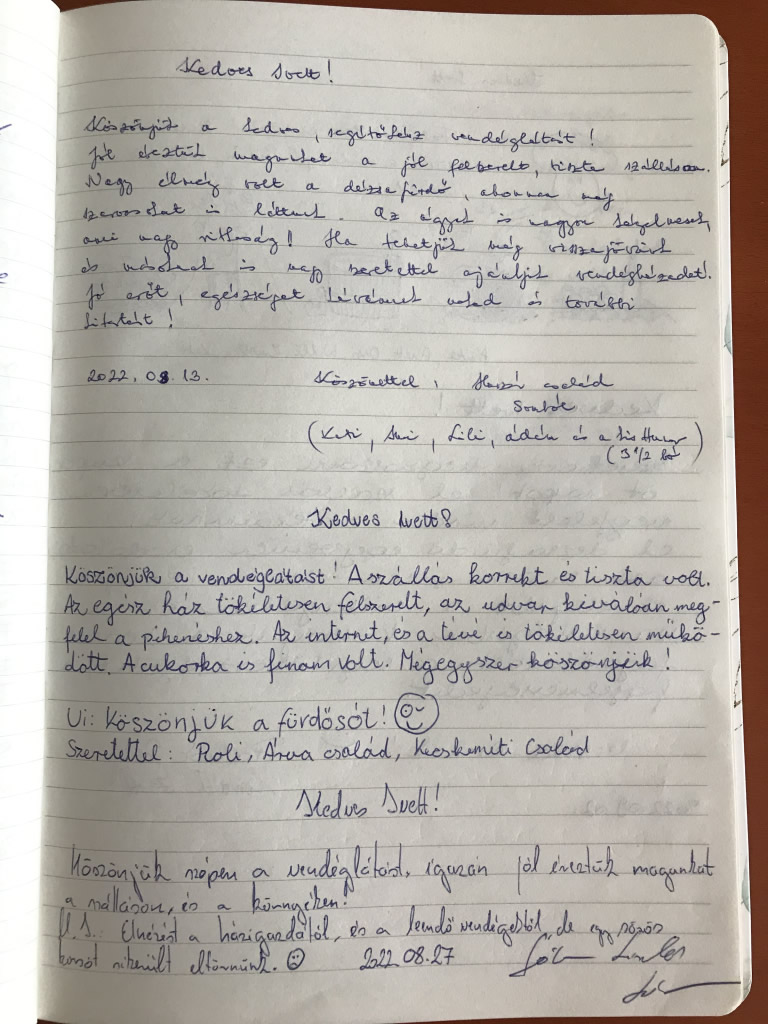 Kedves Ivett!
Köszönjük a kedves, segítőkész vendéglátást!
Jól éreztük magunkat a jól felszerelt, tiszta szálláson.
Nagy élmény volt a dézsafürdő, ahonnan még
szarvasokat is láttunk. Az ágyak is nagyon kényelmesek,
ami nagy ritkaság! Ha tehetjük még visszajövünk
és másoknak is nagy szeretettel ajánljuk vendégházadat!
Jó erőt, egészséget kívánunk neked és további
kitartást!
2022. 08. 13.
Köszönettel, család
(Kati, , Lili, Ádám és a kis
(3 1/2
Kedves Ivett!
Köszönjük a vendéglátást! A szállás korrekt és tiszta volt.
Az egész ház tökéletesen felszerelt, az udvar kiválóan meg-
felel a pihenéshez. Az internet, és a tévé is tökéletesen műkö-
dött. A cukorka is finom volt. Mégegyszer köszönjük!
Ui: Köszönjük a fürdősót!
Szeretettel: Roli, Árva család, Kecskeméti Család
Kedves Ivett!
Köszönjük szépen a vendéglátást, igazán jól éreztük magunkat
a szálláson, és a környéken!
U.I.: Elnézést a házigazdától, és a leendő vendégektől, de egy sörös
korsót sikerült eltörnünk. 2022.08.27